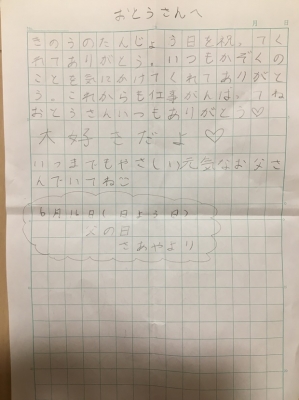 おとうさんへ
月 日
きのうのたんじょう日を祝ってく
れてありがとう。いつもかぞくの
ことを気にかけてくれてありがと
う。これからも仕事がんばってね
おとうさんいつもありがとう♡
大好きだよ♡
いつまでもやさしい元気なお父さ
んでいてね
6月16日(日よう日)
父の日
さあやより